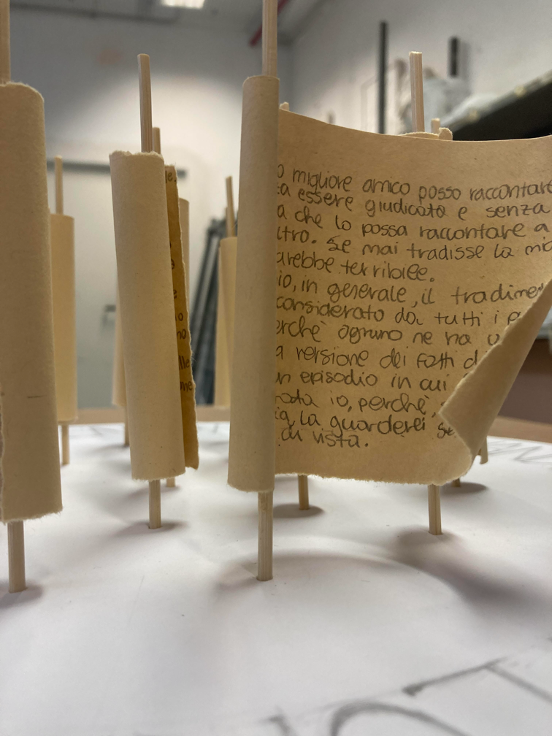 o migliore amico posso raccontare
ta essere giudicata e senza
a che lo possa raccontare a
ltro. Se mai tradisse la mia
arebbe terribile.
io, in generale, il tradime
considerato da tutti i
erchè ognuno ne ha
a versione dei fatti d
un episodio in cui
io, perchè,
la guarderei se
di vista.